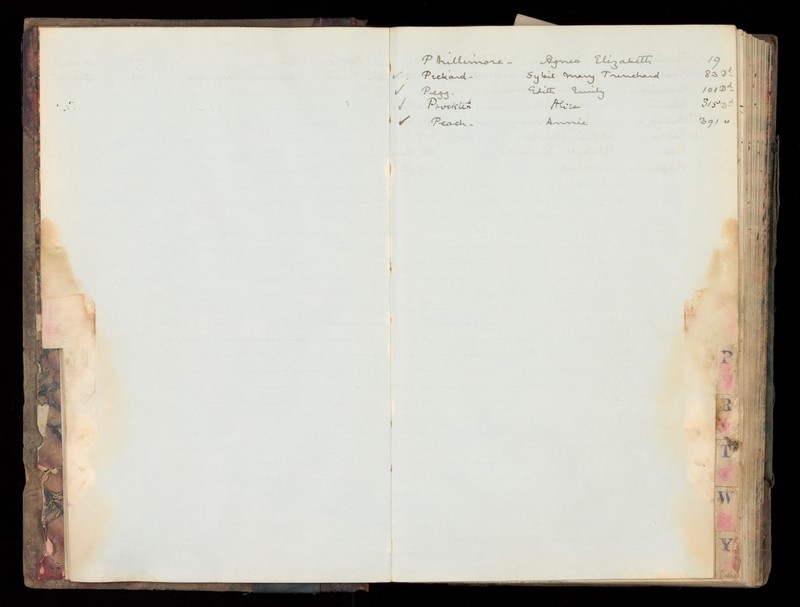 Phillimore - Agnes Elizabeth 19
✓ Pickard - Sybil Mary Trenchard 83
✓ Pegg. Edith Emily 101
✓ Alice
✓ Peach - Annie 391 "
P
R
T
W
Y